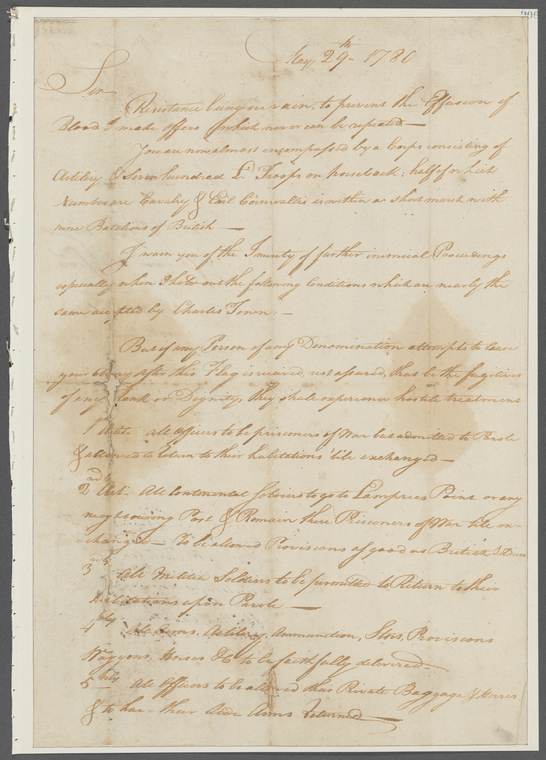 May 29th 1780
Sir
Resistance being vain, to prevent the Effusion of
Blood I make offers which never can be repeated —
You are now almost encompassed by a Corps consisting of
Artilery & Seven hundred Lt. Troops on horseback; half of which
Number are Cavalry & Earl Cornwallis is within a short march with
nine Batalions of British —
I warn you of the Temerity of further inimical Proceedings
especially when I hold out the following Conditions which are nearly the
same accepted by Charles Town. —
But if any Person of any Denomination attempts to leave
your after this Flag is received, rest assured, that be the fugitives
of any Rank or Dignity, they shall experience hostile treatment
1 All Officers to be prisoners of War but admitted to Parole
& allowed to return to their habitations 'till exchanged —
2 Art. All Continental Soldiers to go to Lampries Point or any
neighbouring Post & Remain there Prisoners of War till ex-
changed — To be allowed Provisions as good as British
3 All Militia Soldiers to be permitted to Return to their
Habitations upon Parole —
4 All Arms, Artilery, Ammunition, Stores, Provisions
Waggons, Horses &c to be faithfully delivered —
5 All Officers to be allowed their Private Baggage & Horses
& to have their Side Arms Returned —